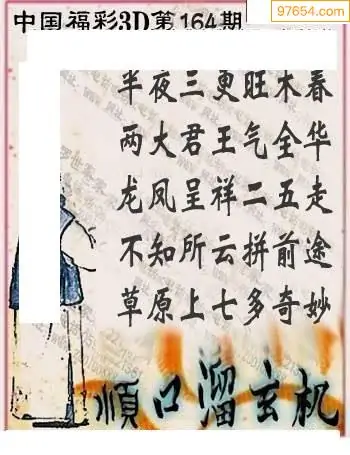 中国福彩3D第164期
97654.com
半夜三更旺木春
两大君王气全华
龙凤呈祥二五走
不知所云拼前途
草原上七多奇妙
顺口溜玄机